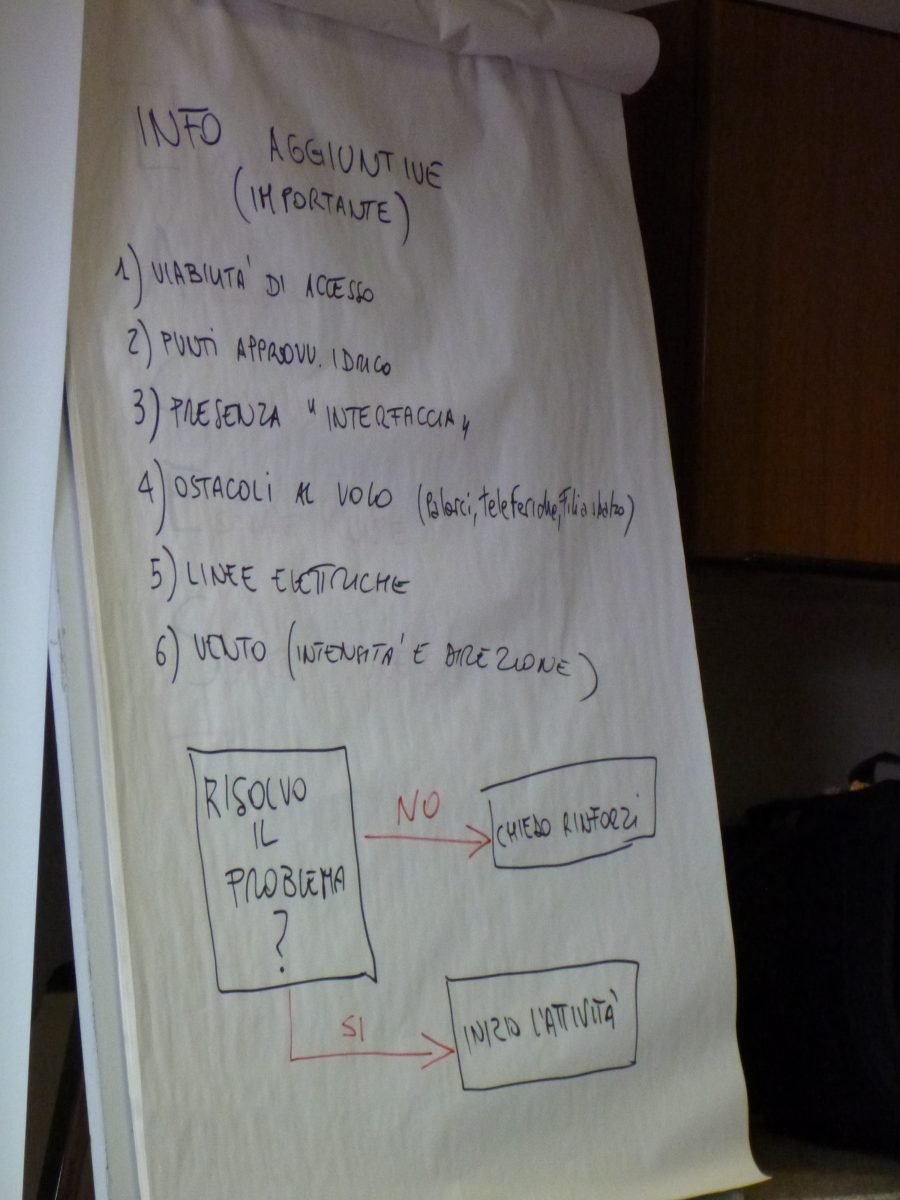 INFO AGGIUNTIVE
(IMPORTANTE)
1) VIABILITA' DI ACCESSO
2) PUNTI APPROVV. IDRICO
3) PRESENZA "INTERFACCIA"
4) OSTACOLI AL VOLO (Palorci, teleferiche, Fili a sbalzo)
5) LINEE ELETTRICHE
6) VENTO (INTENSITA' E DIREZIONE)
RISOLVO
IL
PROBLEMA
?
NO
CHIEDO RINFORZI
SI
INIZIO L'ATTIVITÀ